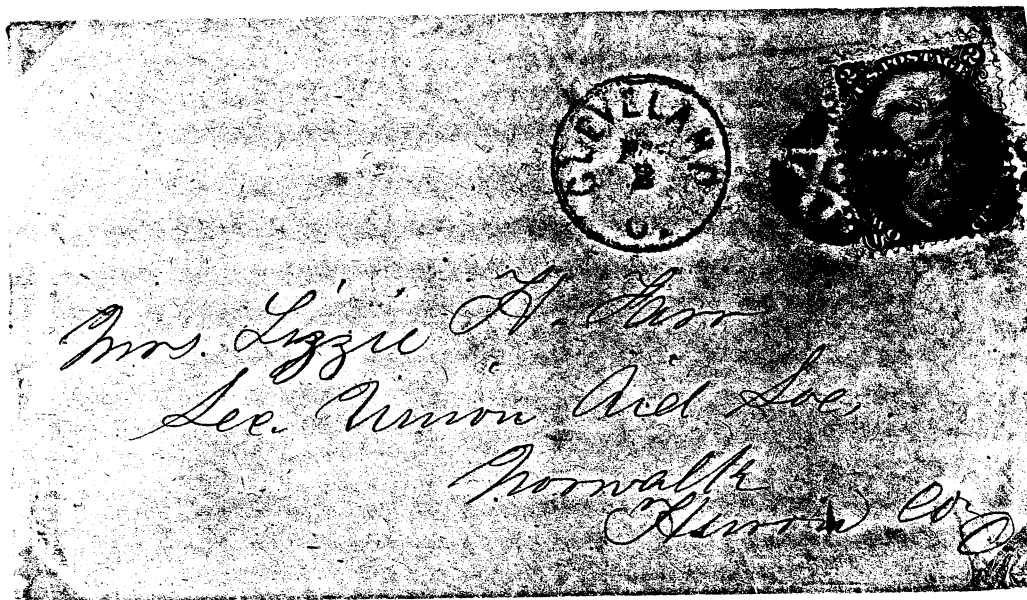 CLEVELAND
2
O.
U.S. POSTAGE
Mrs. Lizzie H. Farr
Sec. Union Aid Soc.
Norwalk
Huron Co.